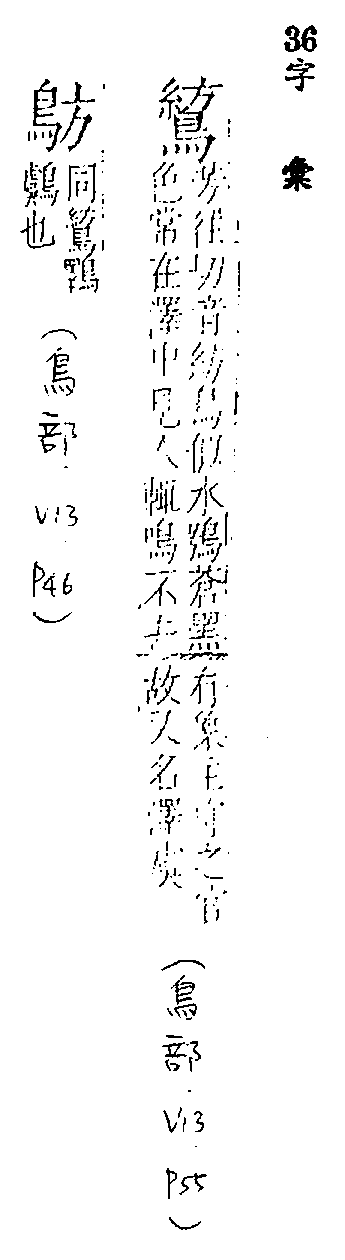 36字彙
鶭
芳往切音紡鳥似水鴞蒼黑有象主守之官
色常在澤中見人輒鳴不去故又名澤虞
(鳥部.V13.P55)
鴋
同鶭鸅
鸆也
(鳥部.V13.P46)